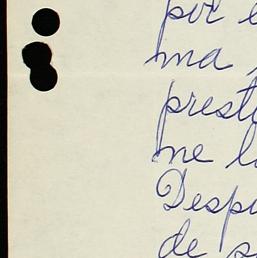 por
ma
prest
me l
Despu
de s